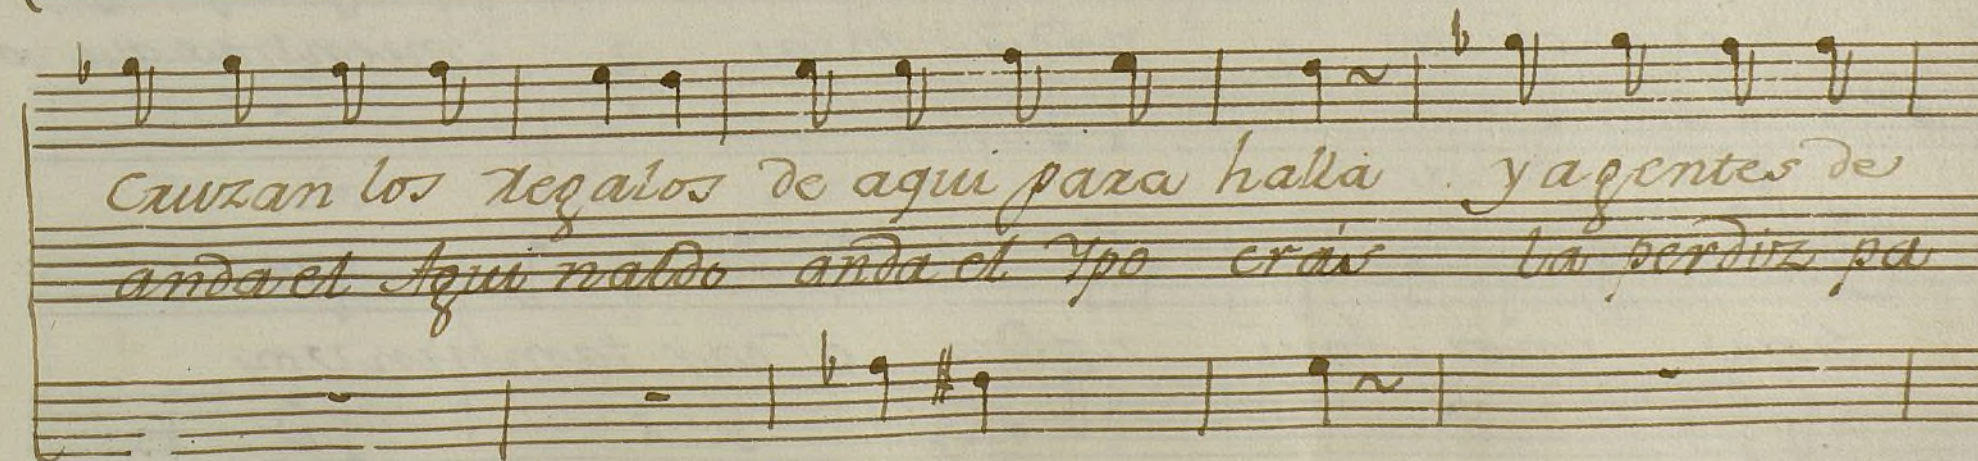 Cruzan los regalos de aqui para hallá y agentes de
anda el Agui naldo anda el Ypo crás la perdiz pa